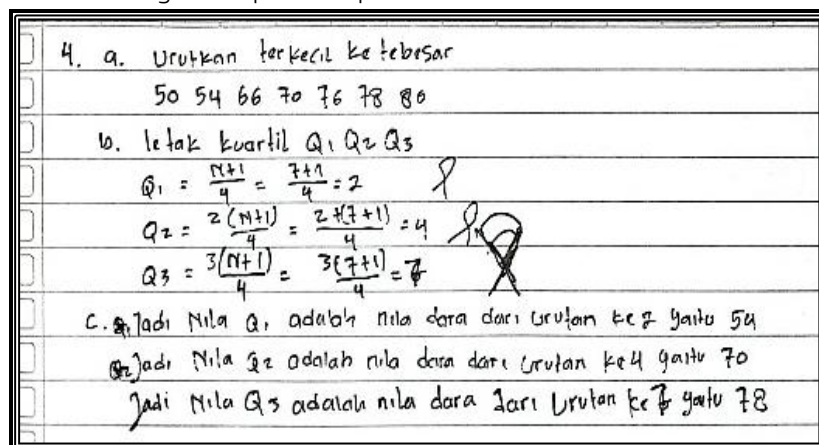 4. a. Urutkan terkecil ke tebesar
50 54 66 70 76 78 80
b. letak kuartil Q1 Q2 Q3
Q1 = N+1/4 = 7+1/4 = 2
Q2 = 2(N+1)/4 = 2+(7+1)/4 = 4
Q3 = 3(N+1)/4 = 3(7+1)/4 =
C. Jadi Nila Q1 adalah nila dara dari urutan ke 2 yaitu 54
Q2 Jadi Nila Q2 adalah nila dara dari urutan ke 4 yaitu 70
Jadi Nila Q3 adalah nila dara dari urutan ke yaitu 78